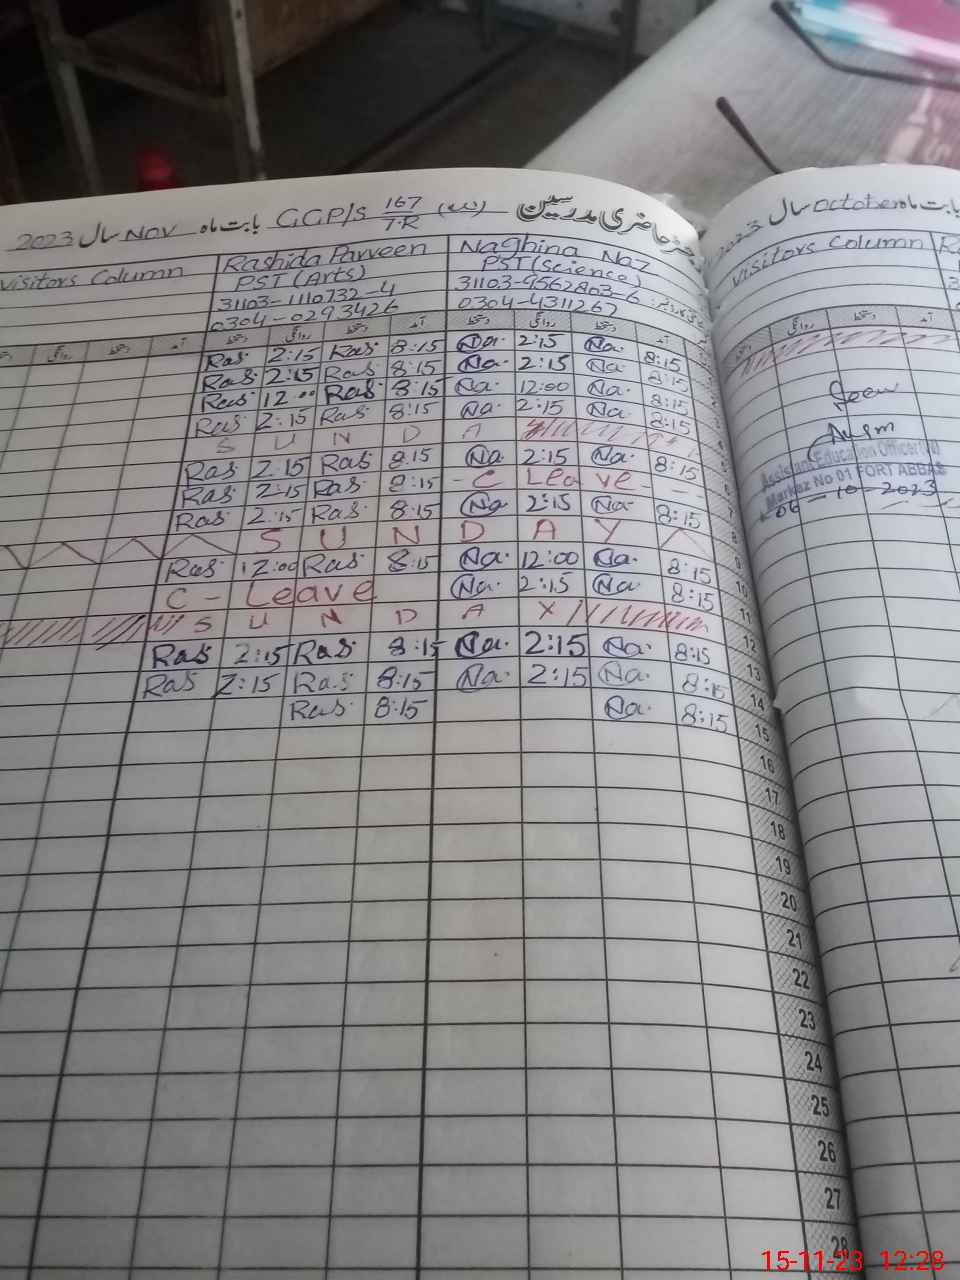 2023 سال Nov بابت ماہ G.G.P/S 167/7-R حاضری مدرسین
Visitors Column Rashida Parveen Naghina Naz
PST (Arts) PST (Science)
31103-1110732-4 31103-9562803-6
0304-0293426 0304-4311267
دستخط روانگی دستخط آمد دستخط روانگی دستخط آمد دستخط روانگی دستخط آمد
Ras 2:15 Ras 8:15 Na 2:15 Na 8:15
Ras 2:15 Ras 8:15 Na 2:15 Na 8:15
Ras 12:00 Ras 8:15 Na 12:00 Na 8:15
Ras 2:15 Ras 8:15 Na 2:15 Na 8:15
S U N D A Y
Ras 2:15 Ras 8:15 Na 2:15 Na 8:15
Ras 2:15 Ras 8:15 - C Leave - - -
Ras 2:15 Ras 8:15 Na 2:15 Na 8:15
S U N D A Y
Ras 12:00 Ras 8:15 Na 12:00 Na 8:15
C - Leave Na 2:15 Na 8:15
S U N D A Y
Ras 2:15 Ras 8:15 Na 2:15 Na 8:15
Ras 2:15 Ras 8:15 Na 2:15 Na 8:15
Ras 8:15 Na 8:15
8
9
10
11
12
13
14
15
16
17
18
19
20
21
22
23
24
25
26
27
28
2023 سال October بابت ماہ
Visitors Column
دستخط روانگی دستخط آمد
Seen
Assistant Education Officer
Markaz No 01 FORT ABBAS
06-10-2023
15-11-23 12:28